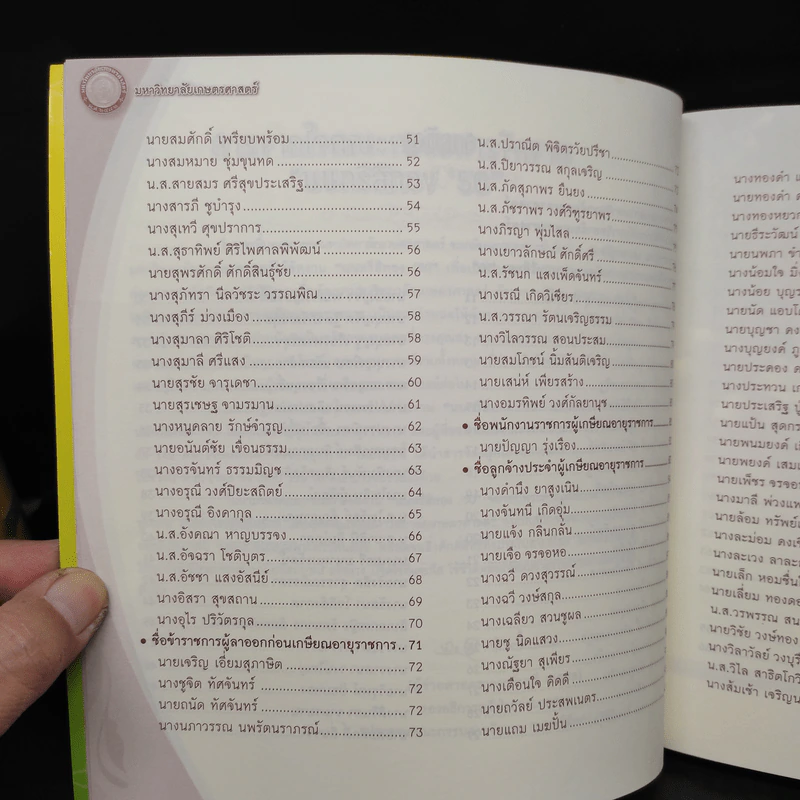 มหาวิทยาลัยเกษตรศาสตร์
นายสมศักดิ์ เพรียบพร้อม 51
นางสมหมาย ชุ่มขุนทด 52
น.ส.สายสมร ศรีสุขประเสริฐ 53
นางสารภี ชูบำรุง 54
นางสุเทวี ศุขปราการ 55
น.ส.สุธาทิพย์ ศิริไพศาลพิพัฒน์ 56
นายสุพรศักดิ์ ศักดิ์สินธุ์ชัย 56
นางสุภัทรา นีลวัชระ วรรณพิณ 57
นางสุภีร์ ม่วงเมือง 58
นางสุมาลา ศิริโชติ 58
นางสุมาลี ศรีแสง 59
นายสุรชัย จารุเดชา 60
นายสุรเชษฐ จามรมาน 61
นางหนูคลาย รักษ์จำรูญ 62
นายอนันต์ชัย เขื่อนธรรม 63
นางอรจันทร์ ธรรมมิญช 63
นางอรุณี วงศ์ปิยะสถิตย์ 64
นางอรุณี อิงคากุล 65
น.ส.อังคณา หาญบรรจง 66
น.ส.อัจฉรา โชติบุตร 67
น.ส.อัชชา แสงอัสนีย์ 68
นางอิสรา สุขสถาน 69
นางอุไร ปริวัตรกุล 70
• ชื่อข้าราชการผู้ลาออกก่อนเกษียณอายุราชการ 71
นายเจริญ เอี่ยมสุภาษิต 72
นางชูจิต ทัศจันทร์ 72
นายถนัด ทัศจันทร์ 72
นางนภาวรรณ นพรัตนราภรณ์ 73
น.ส.ปราณีต พิจิตรวัยปรีชา
น.ส.ปิยาวรรณ สกุลเจริญ
น.ส.ภัคสุภาพร ยืนยง
น.ส.ภัชราพร วงศ์วิฑูรยาพร
นางภิรญา พุ่มไสล
นางเยาวลักษณ์ ศักดิ์ศรี
น.ส.รัชนก แสงเพ็ดจันทร์
นางเรณี เกิดวิเชียร
น.ส.วรรณา รัตนเจริญธรรม
นางวิไลวรรณ สอนประสม
นายสมโภชน์ นิ้มสันติเจริญ
นายเสน่ห์ เพียรสร้าง
นางอมรทิพย์ วงศ์กัลยานุช
• ชื่อพนักงานราชการผู้เกษียณอายุราชการ
นายปัญญา รุ่งเรือง
• ชื่อลูกจ้างประจำผู้เกษียณอายุราชการ
นางดำนึง ยาสูงเนิน
นางจันทนี เกิดอุ่ม
นายแจ้ง กลิ่นกลั่น
นายเจือ จรจอหอ
นางฉวี ดวงสุวรรณ์
นางฉวี วงษ์สกุล
นางเฉลียว สวนชูผล
นายชู นิดแสวง
นางณัฐยา สุเพียร
นางเตือนใจ ติดดี
นายถวัลย์ ประสพเนตร
นายแถม เมฆปั้น
นางทองคำ
นายทองดำ
นางทองหยวก
นายธีระวัฒน์
นายนพภา
นางน้อมใจ
นางน้อย
นายนัด แอบ
นายบุญชา
นางบุญยงค์
นายประดอง
นางประทวน
นายประเสริฐ
นายแป้น สุดกร
นายพนมยงค์
นายพยงค์ เสม
นายเพ็ชร จรจอ
นางมาลี พ่วงแพ
นายล้อม ทรัพย์
นางละม่อม ดงเชิ
นางละเวง ลาละ
นายเล็ก หอมชื่น
นายเลี่ยม ทองดอ
น.ส.วรพรรณ สน
นายวิชัย วงษ์ทอง
นางวิลาวัลย์ วงบุรี
น.ส.วิไล สาธิตโกวิ
นางส้มเช้า เจริญน